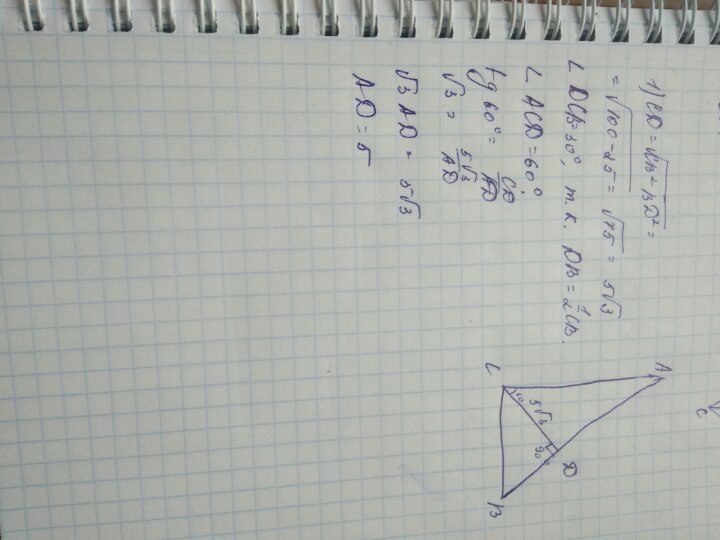 1) CD = √CB² BD² =
= √100-25 = √75 = 5√3
∠ DCB=30°, т.к. DB = 1/2 CB.
∠ ACD = 60°
tg 60° = CD/AD
√3 = 5√3/AD
√3 AD = 5√3
AD = 5
A
C
5√3
D
90°
B
C